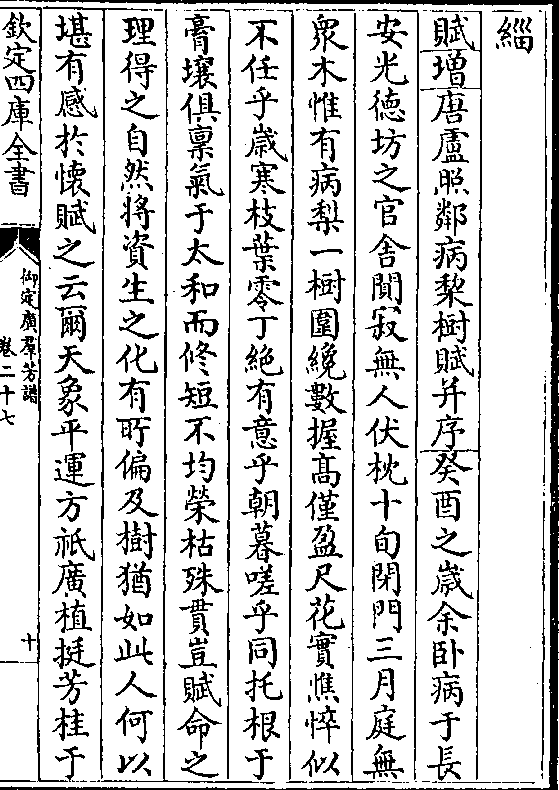 緇
賦增唐盧照鄰病棃樹賦并序癸酉之歲余卧病于長
安光德坊之官舍閴寂無人伏枕十旬閉門三月庭無
衆木惟有病梨一樹圍繞數握髙僅盈尺花實憔悴似
不任乎歲寒枝葉零丁絶有意乎朝暮嗟乎同托根于
膏壤俱稟氣于太和而修短不均榮枯殊貫豈賦命之
理得之自然將資生之化有所偏及樹猶如此人何以
堪有感於懷賦之云爾天象平運方祇廣植挺芳桂于
欽定四庫全書
御定廣羣芳譜
卷二十七
十